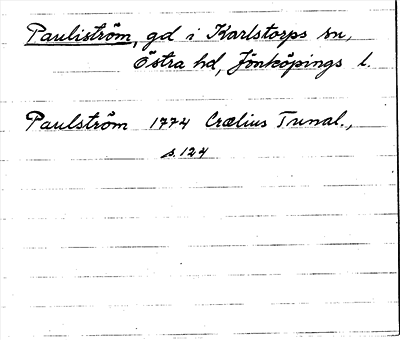 Pauliström, gd i Karlstorps sn,
Östra hd, Jönköpings l.
Paulström 1774 Crælius Tunal.,
s. 124